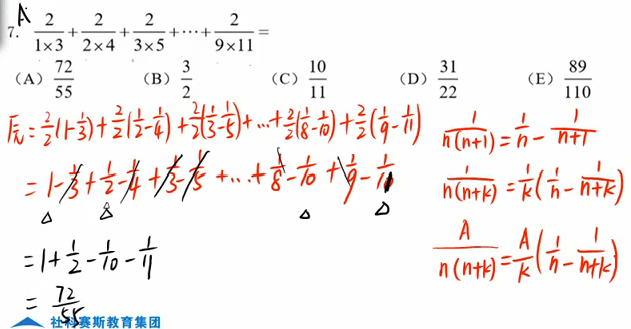 A
7. 2/(1×3) + 2/(2×4) + 2/(3×5) + ··· + 2/(9×11) =
(A) 72/55 (B) 3/2 (C) 10/11 (D) 31/22 (E) 89/110
原式 = 2/2(1-1/3) + 2/2(1/2-1/4) + 2/2(1/3-1/5) + ... + 2/2(1/8-1/10) + 2/2(1/9-1/11)
= 1-1/3+1/2-1/4+1/3-1/5+...+1/8-1/10+1/9-1/11
= 1+1/2-1/10-1/11
= 72/55
1/(n(n+1)) = 1/n - 1/(n+1)
1/(n(n+k)) = 1/k(1/n - 1/(n+k))
A/(n(n+k)) = A/k(1/n - 1/(n+k))
社科赛斯教育集团